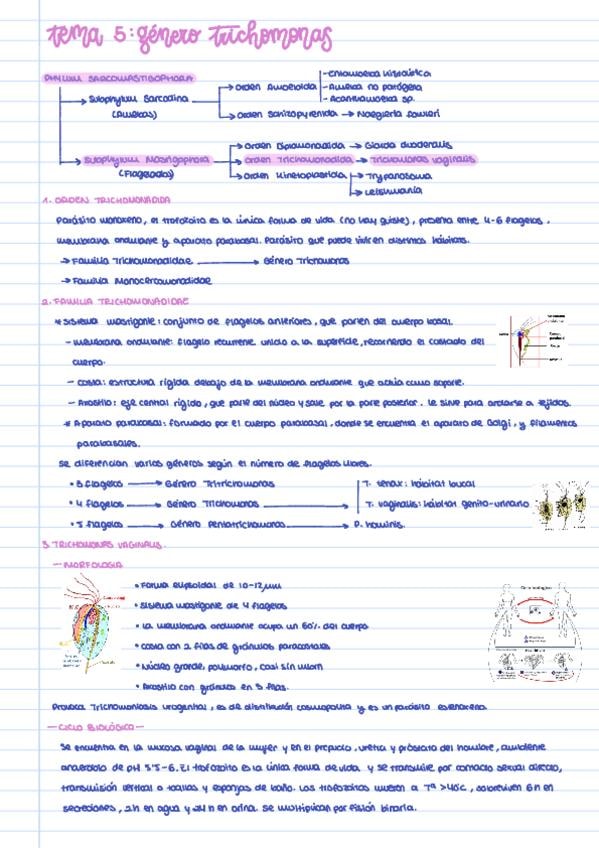 tema 5: género trichomonas
PHYLUM SARCOMASTIGOPHORA
Subphylum Sarcodina
(Amebas)
Orden Amoebida
- Entamoeba histolítica
- Ameba no patógena
- Acanthamoeba sp.
Orden Schizopyrenida → Naegleria fowleri
Subphylum Mastigophora
(Flagelados)
Orden Diplomonadida → Giardia duodenalis
Orden Trichomonadida → Trichomonas vaginalis
Orden Kinetoplastida → Trypanosoma
→ Leishmania
1. ORDEN TRICHOMONADIDA
Parásito monoxeno, el trofozoito es la única forma de vida (no hay quiste), presenta entre 4-6 flagelos,
membrana ondulante y aparato parabasal. Parásito que puede vivir en distintos hábitats.
→ Familia Trichomonadidae → Género Trichomonas
→ Familia Monocercomonadidae
2. FAMILIA TRICHOMONADIDAE
* Sistema mastigonte: conjunto de flagelos anteriores, que parten del cuerpo basal.
- Membrana ondulante: flagelo recurrente unido a la superficie, recorriendo el costado del
cuerpo.
- Costa: estructura rígida debajo de la membrana ondulante que actúa como soporte.
- Axostilo: eje central rígido, que parte del núcleo y sale por la parte posterior. Le sirve para anclarse a tejidos.
* Aparato parabasal: formado por el cuerpo parabasal, donde se encuentra el aparato de Golgi, y filamentos
parabasales.
Se diferencian varios géneros según el número de flagelos libres.
• 3 flagelos → Género Tritrichomonas
• 4 flagelos → Género Trichomonas → T. tenax: hábitat bucal
T. vaginalis: hábitat genito-urinario
• 5 flagelos → Género Pentatrichomonas → P. hominis.
3. TRICHOMONAS VAGINALIS.
- MORFOLOGÍA
• Forma elipsoidal de 10-12 µm
• Sistema mastigonte de 4 flagelos
• La membrana ondulante ocupa un 60% del cuerpo
• Costa con 2 filas de gránulos paracostales
• Núcleo grande, polimorfo, casi sin
• Axostilo con gránulos en 3 filas.
Provoca Trichomoniasis urogenital, es de distribución cosmopolita y es un parásito estenoxeno.
- CICLO BIOLÓGICO -
Se encuentra en la mucosa vaginal de la mujer y en el prepucio, uretra y próstata del hombre, ambiente
anaerobio de pH 5'5-6. El trofozoito es la única forma de vida y se transmite por contacto sexual directo,
transmisión vertical o toallas y esponjas de baño. Los trofozoitos mueren a Tª >40ºC, sobreviven 6h en
secreciones, 2h en agua y 24h en orina. Se multiplican por fisión binaria.